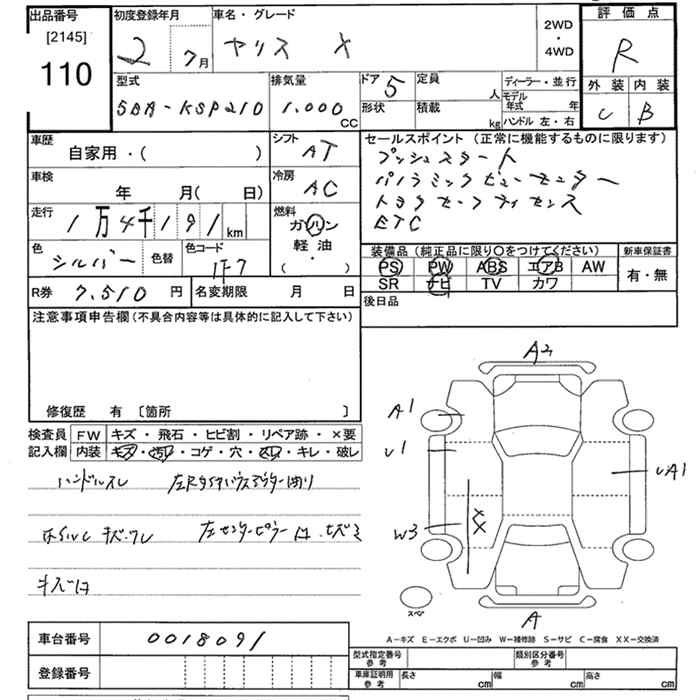 出品番号 初度登録年月 車名・グレード 評価点
[2145] 2WD
110 2 7月 ヤリス X ・ R
4WD
型式 排気量 ドア 5 定員 人 ディーラー・並行 外装 内装
5BA-KSP210 1.000 CC 形状 積載 kg モデル年式 年 C B
ハンドル 左・右
車歴 シフト セールスポイント (正常に機能するものに限ります)
自家用・( ) AT プッシュスタート
車検 冷房 パノラミックビューモニター
年 月( 日) AC トヨタセーフティセンス
走行 燃料 ETC
1万4千191km ガソリン
色 色替 色コード 軽油 装備品 (純正品に限り○をつけてください) 新車保証書
シルバー 1F7 ・ PS PW ABS エアB AW 有・無
( ) SR ナビ TV カワ
R券 7.510 円 名変期限 月 日 後日品
注意事項申告欄(不具合内容等は具体的に記入して下さい)
修復歴 有 [箇所 ]
検査員 FW キズ・飛石・ヒビ割・リペア跡・×要
記入欄 内装 キズ・汚れ・コゲ・穴・スレ・キレ・破レ
ハンドルスレ
キズ
A2
A1
U1
UA1
W3
XX
スペア
A
A-キズ E-エクボ U-凹み W-補修跡 S-サビ C-腐食 XX-交換済
車台番号 0018091
登録番号
型式指定番号 参考 類別区分番号 参考
車庫証明用 参考 長さ cm 幅 cm 高さ cm